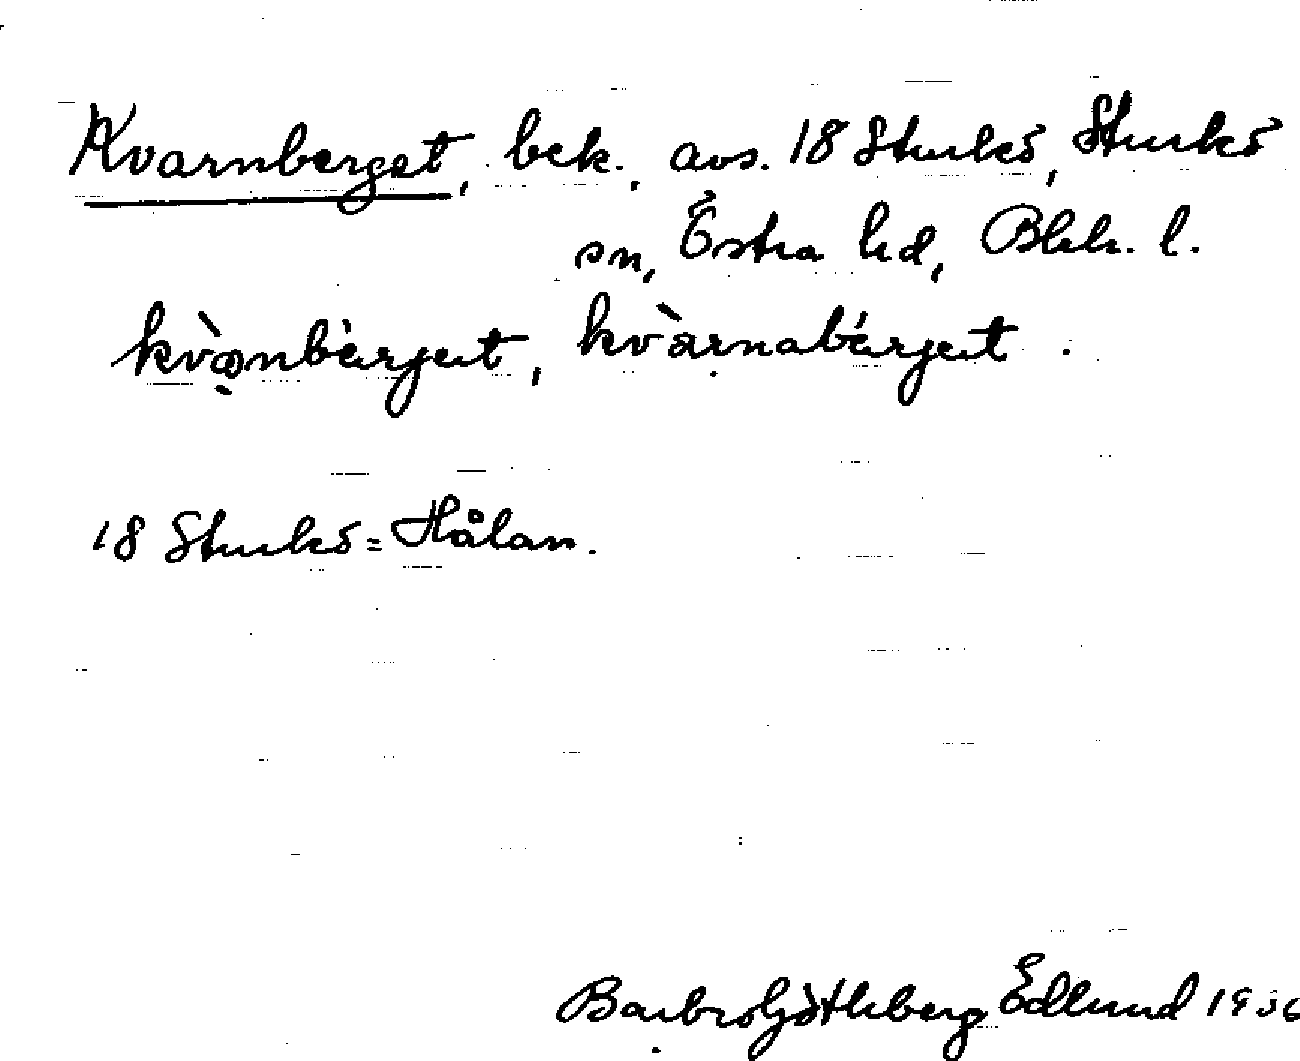 Kvarnberget, bek., avs. 18 Sturkö, Sturkö
sn, Östra hd, Blek. l.
kvànbärjet, kvàrnabärjet.
18 Sturkö = Hålan.
Barbro Götheberg Edlund 1936